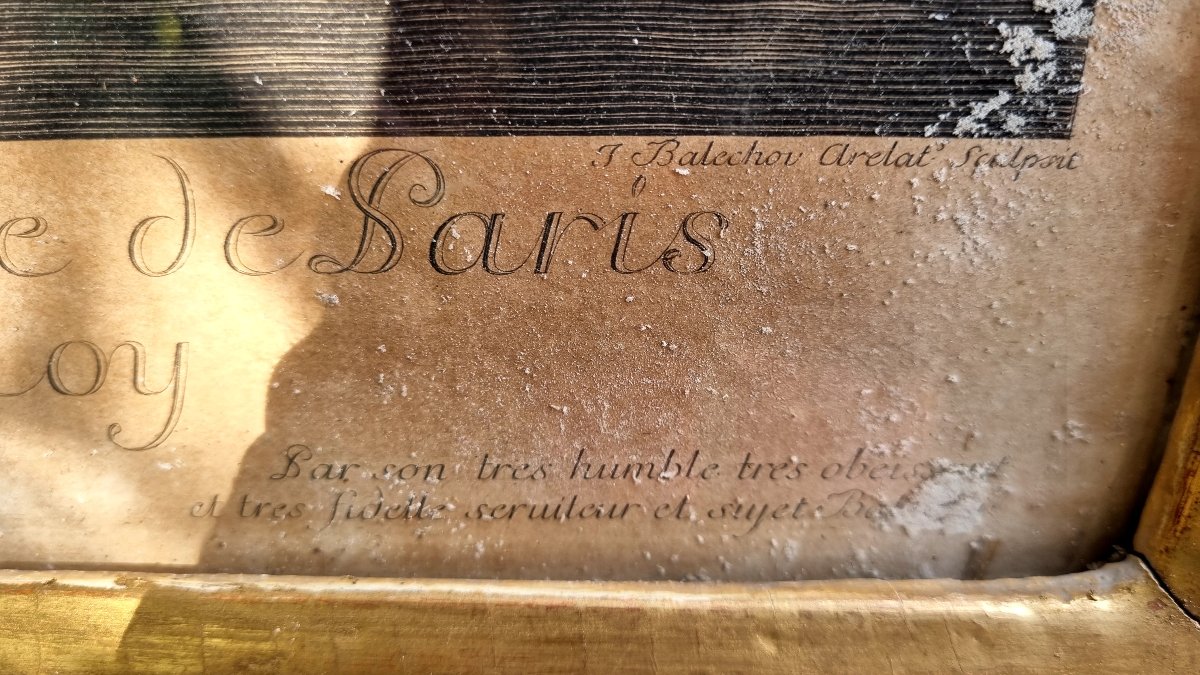 J Balechou Arelat.ˢ Sculpsit
e de Paris
Loy
Par son tres humble tres obeissant
et tres fidelle seruiteur et sujet